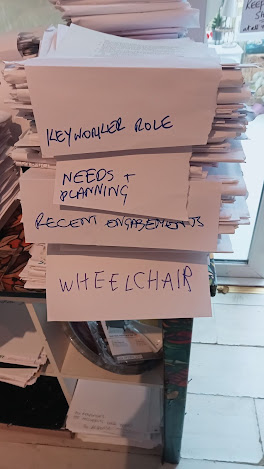 KEEP
KEYWORKER ROLE
NEEDS +
PLANNING
RECENT ENGAGEMENTS
WHEELCHAIR